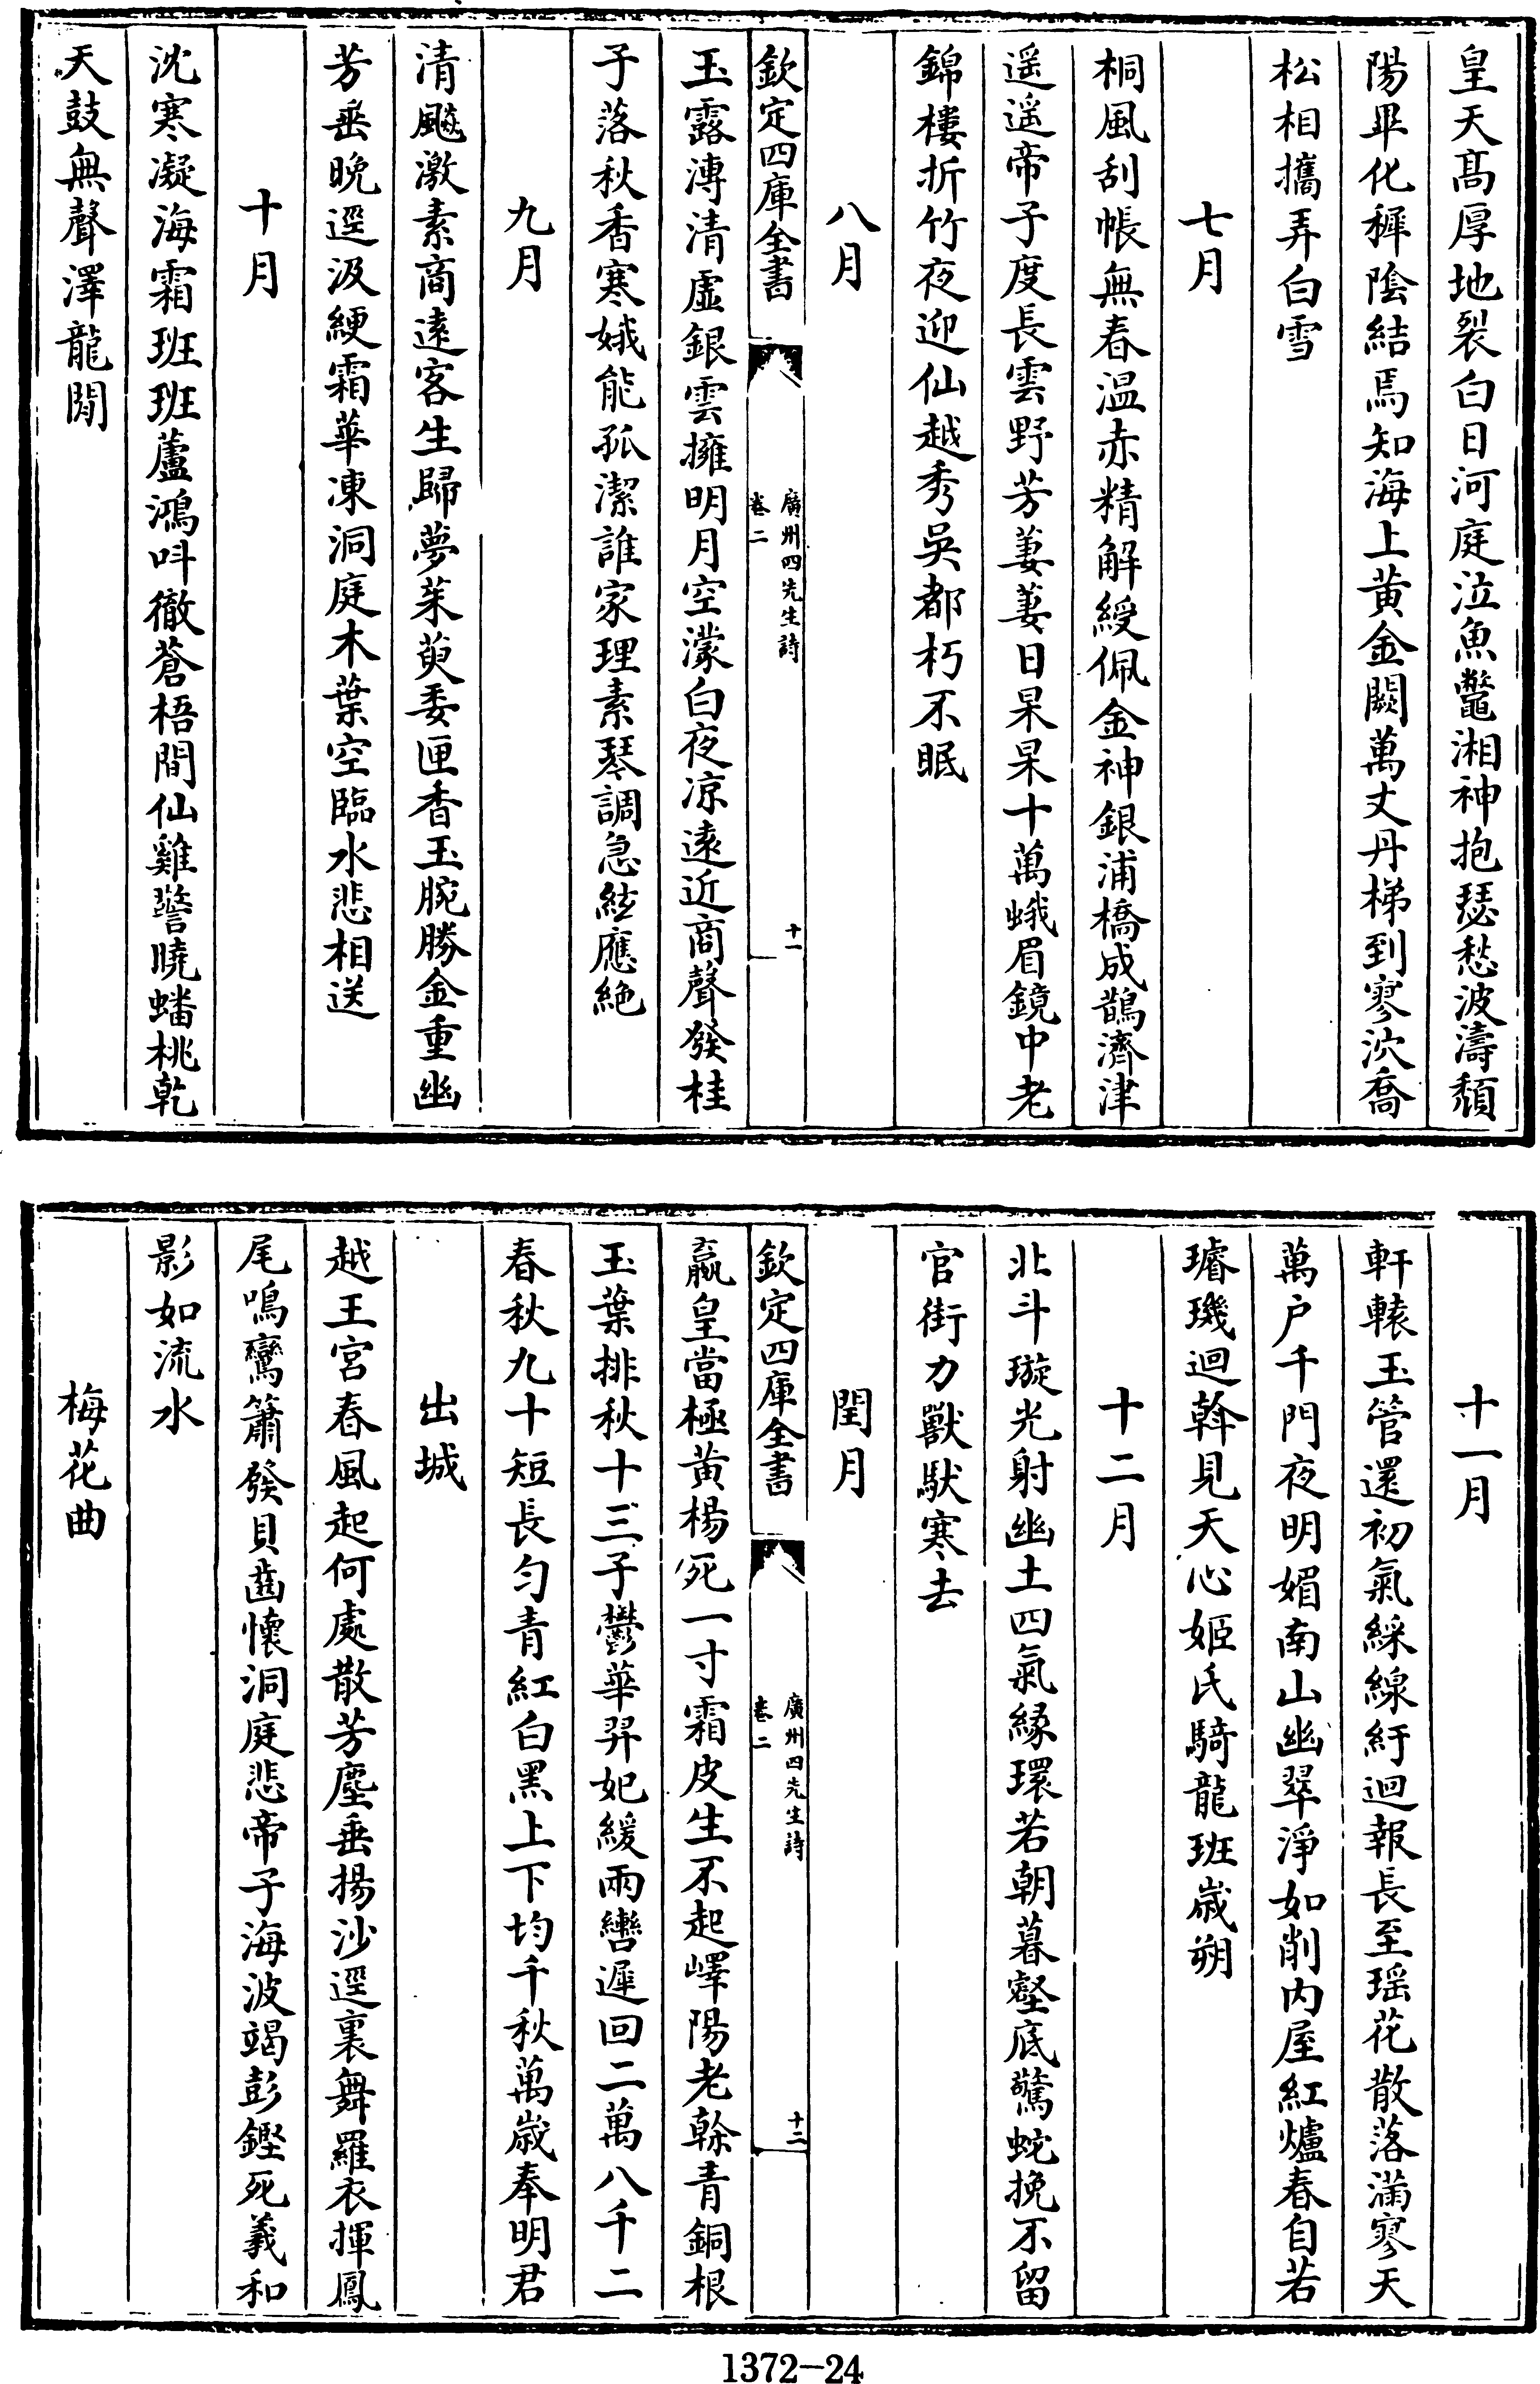 皇天髙厚地裂白日河庭泣魚鼈湘神抱瑟愁波濤頽
陽畢化穉隂結焉知海上黄金闕萬丈丹梯到寥泬喬
松相攜弄白雪
七月
桐風刮帳無春温赤精解綬佩金神銀浦橋成鵲濟津
遥遥帝子度長雲野芳萋萋日杲杲十萬蛾眉鏡中老
錦樓折竹夜迎仙越秀吳都朽不眠
八月
欽定四庫全書
廣州四先生詩
卷二
十一
玉露漙清虚銀雲擁明月空濛白夜凉遠近商聲發桂
子落秋香寒娥能孤潔誰家理素琴調急絃應絶
九月
清飈激素商遠客生歸夢茱萸委匣香玉腕勝金重幽
芳垂晚逕汲綆霜華凍洞庭木葉空臨水悲相送
十月
沈寒凝海霜班班蘆鴻呌徹蒼梧間仙雞警曉蟠桃乾
天鼓無聲澤龍閒
十一月
軒轅玉管還初氣綵線紆迴報長至瑶花散落滿寥天
萬户千門夜明媚南山幽翠淨如削内屋紅爐春自若
璿璣迴斡見天心姬氏騎龍班嵗朔
十二月
北斗璇光射幽土四氣縁環若朝暮壑底驚蛇挽不留
官街力獸馱寒去
閏月
欽定四庫全書
廣州四先生詩
卷二
十二
嬴皇當極黄楊死一寸霜皮生不起嶧陽老榦青銅根
玉葉排秋十三子鬱華羿妃緩兩轡遲回二萬八千二
春秋九十短長匀青紅白黑上下均千秋萬嵗奉明君
出城
越王宫春風起何處散芳塵垂揚沙逕裏舞羅衣揮鳳
尾鳴鸞簫發貝齒懷洞庭悲帝子海波竭彭鏗死羲和
影如流水
梅花曲
1372-24